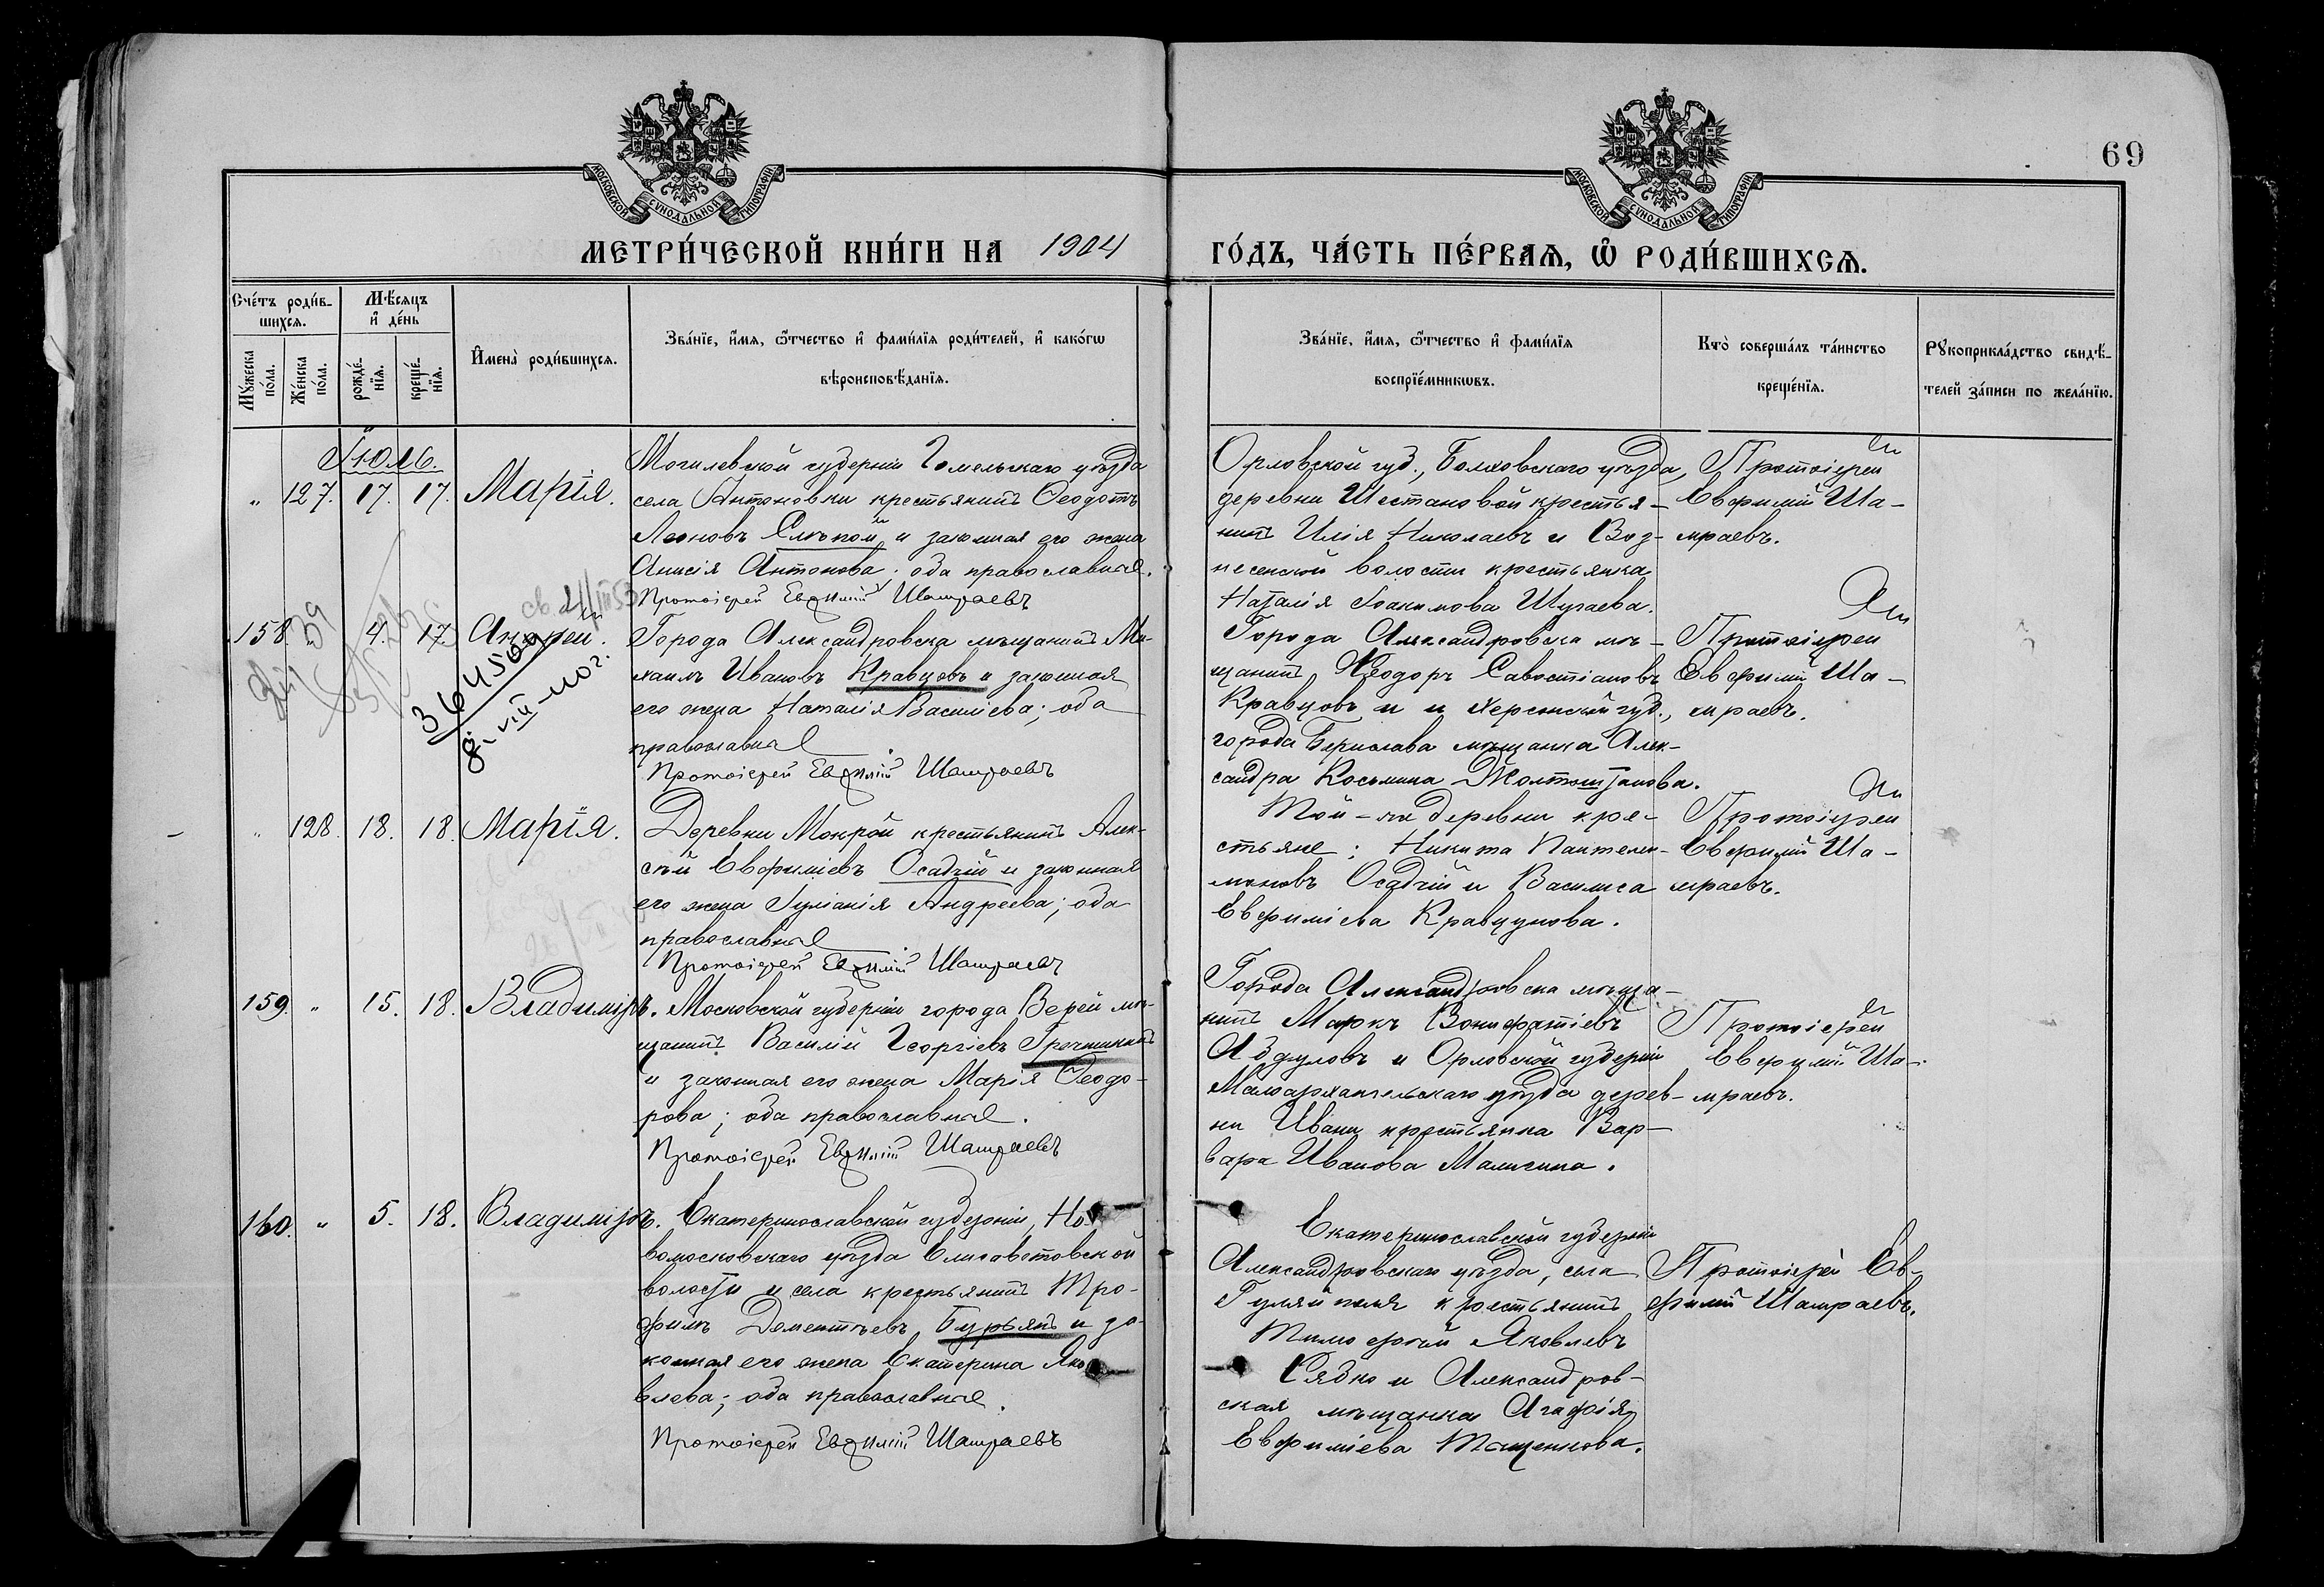 69
МОСКОВСКОЙ СУНОДАЛЬНОЙ ТИПОГРАФІИ
МОСКОВСКОЙ СУНОДАЛЬНОЙ ТИПОГРАФІИ
МЕТРИ́ЧЕСКОЙ КНИ́ГИ НА 1904 ГО́ДЪ, ЧА́СТЬ ПЕ́РВАѦ, Ѽ РОДИ́ВШИХСѦ.
Сче́тъ роди́в-
шихсѧ.
Мꙋ́жеска
по́ла.
Же́нска
по́ла.
Мѣ́сѧцъ
и҆ де́нь
рожде́-
нїѧ.
креще́-
нїѧ.
И҆мена̀ роди́вшихсѧ.
Зва́нїе, и҆́мѧ, ѻ҆́тчество и҆ фами́лїѧ роди́телей, и҆ како́гѡ
вѣроисповѣ́данїѧ.
Зва́нїе, и҆́мѧ, ѻ҆́тчество и҆ фами́лїѧ
воспрїе́мникѡвъ.
Кто̀ соверша́лъ та́инство
креще́нїѧ.
Рꙋкоприкла́дство свидѣ́-
телей за́писи по жела́нїю.
Іюль.
„ 127. 17. 17. Марія.
Могилевской губерніи Гомельскаго уѣзда
села Антоновки крестьянинъ Ѳеодотъ
Леоновъ Слѣпой и законная его жена
Анисія Антонова; оба православные.
Протоіерей Евѳимій Шамраевъ
Орловской губ., Болховскаго уѣзда,
деревни Шестаковой крестья-
нинъ Илія Николаевъ и Воз-
несенской волости крестьянка
Наталія Іоакимова Шугаева.
Протоіерей
Евфимій Ша-
мраевъ.
158. „ 4. 17. Андрей.
364500
8-VIII-40 г.
Города Александровска мѣщанинъ Ми-
хаилъ Ивановъ Кравцовъ и законная
его жена Наталія Василіева; оба
православные
Протоіерей Евѳимій Шамраевъ
Города Александровска мѣ-
щанинъ Ѳеодоръ Савостіановъ
Кравцовъ и и Херсонской губ.,
города Берислава мѣщанка Алек-
сандра Косьмина Жолтоштанова.
Протоіерей
Евфимій Ша-
мраевъ.
„ 128. 18. 18. Марія.
Деревни Мокрой крестьянинъ Алек-
сѣй Евфиміевъ Осадчій и законная
его жена Іуліанія Андреева; оба
православные
Протоіерей Евѳимій Шамраевъ
Той-же деревни кре-
стьяне: Никита Пантелеи-
моновъ Осадчій и Василиса
Евфиміева Кравцунова.
Протоіерей
Евфимій Ша-
мраевъ.
159. „ 15. 18. Владиміръ.
Московской губерніи города Вереи мѣ-
щанинъ Василій Георгіевъ Гречишкинъ
и законная его жена Марія Ѳеодо-
рова; оба православные.
Протоіерей Евѳимій Шамраевъ
Города Александровска мѣща-
нинъ Маркъ Вонифатіевъ
Абдуловъ и Орловской губерніи
Малоархангельскаго уѣзда дерев-
ни Ивани крестьянка Вар-
вара Иванова Малыгина.
Протоіерей
Евфимій Ша-
мраевъ.
160. „ 5. 18. Владиміръ.
Екатеринославской губерніи, Но-
вомосковскаго уѣзда Елисаветовской
волости и села крестьянинъ Тро-
фимъ Дементьевъ Бурьянъ и за-
конная его жена Екатерина Яко-
влева; оба православные.
Протоіерей Евѳимій Шамраевъ
Екатеринославской губерніи
Александровскаго уѣзда, села
Гуляйполя крестьянинъ
Тимофей Яковлевъ
Рябко и Александров-
ская мѣщанка Агафія
Евфиміева Тащенкова.
Протоіерей Ев-
фимій Шамраевъ.